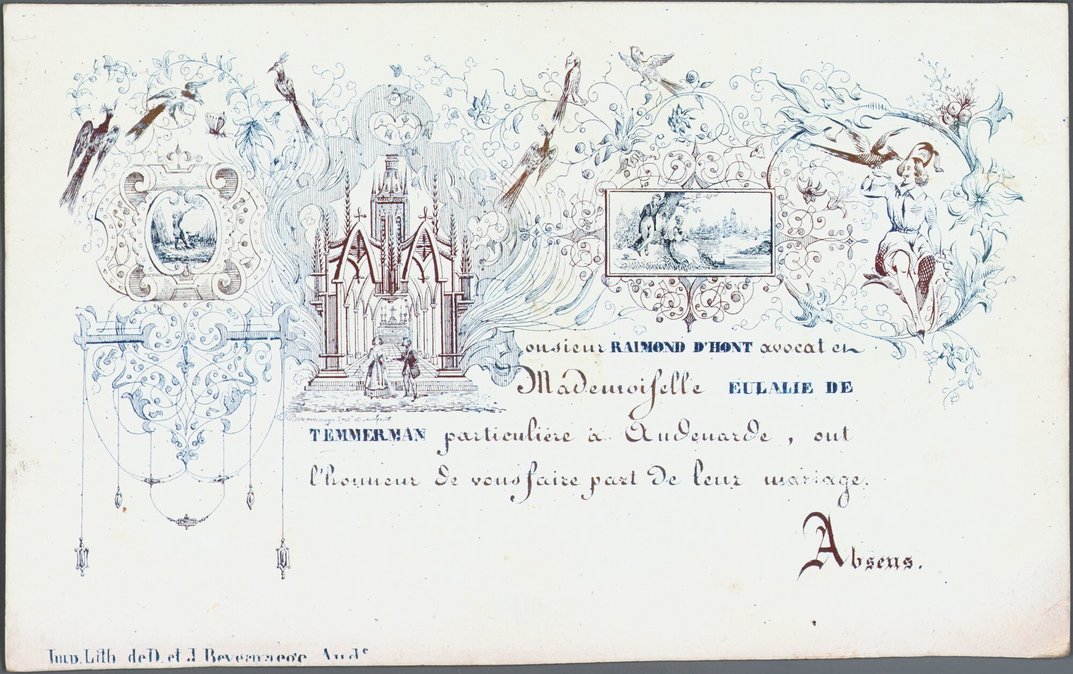 Monsieur RAIMOND D'HONT avocat et
Mademoiselle EULALIE DE
TEMMERMAN particulière à Audenarde, ont
l'honneur de vous faire part de leur mariage.
Absens.
Imp. Lith. de D. et J. Bevernaege Aud^e